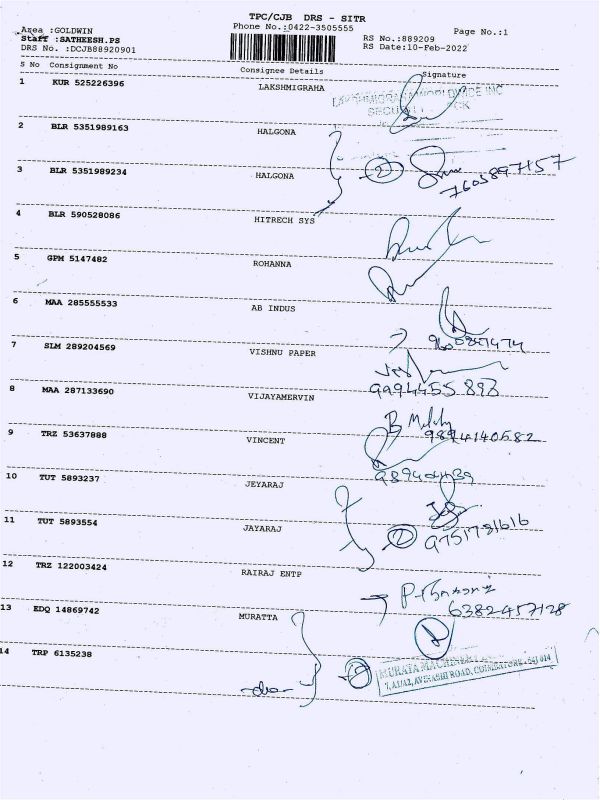 TPC/CJB DRS - SITR
Area :GOLDWIN
Phone No.:0422-3505555
Page No.:1
Staff :SATHEESH.PS
RS No.:889209
DRS No. :DCJB88920901
RS Date:10-Feb-2022
S No Consignment No Consignee Details Signature
1 KUR 525226396 LAKSHMIGRAHA
2 BLR 5351989163 HALGONA
3 BLR 5351989234 HALGONA
2
7603897157
4 BLR 590528086 HITRECH SYS
5 GPM 5147482 ROHANNA
6 MAA 285555533 AB INDUS
7 SLM 289204569 VISHNU PAPER
8 MAA 287133690 VIJAYAMERVIN
9994455898
9 TRZ 53637888 VINCENT
9894140582
10 TUT 5893237 JEYARAJ
11 TUT 5893554 JAYARAJ
2
9751781616
12 TRZ 122003424 RAIRAJ ENTP
6382457128
13 EDQ 14869742 MURATTA
14 TRP 6135238
MURATA MACHINERY
AVINASHI ROAD, COIMBATORE - 641 014